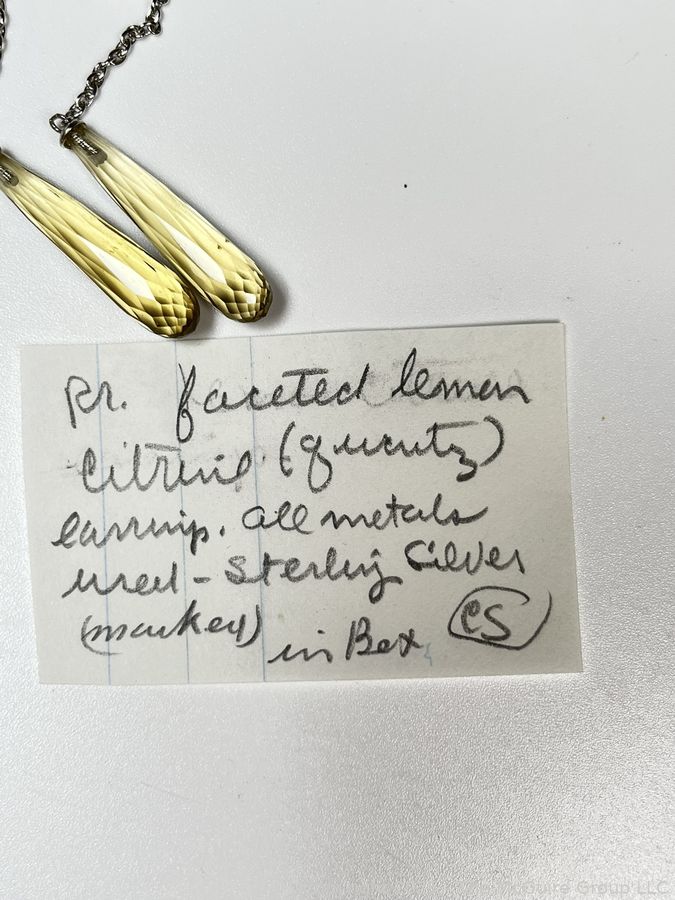 pr. faceted lemon
citrine (quartz)
earrings. all metals
used - Sterling Silver
(marked) in Box CS
Guire Group LLC